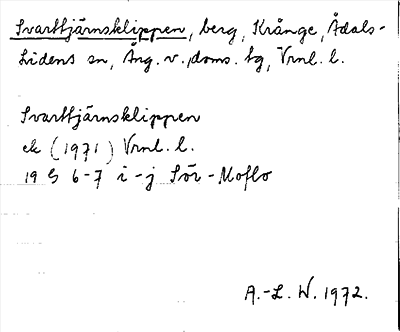 Svarttjärnsklippen, berg, Krånge, Ådals-
Lidens sn, Ång. v., doms. tg, Vrnl. l.
Svarttjärnsklippen
ek (1971) Vrnl. l.
19 G 6-7 i-j Sör-Moflo
A.-L. W. 1972.